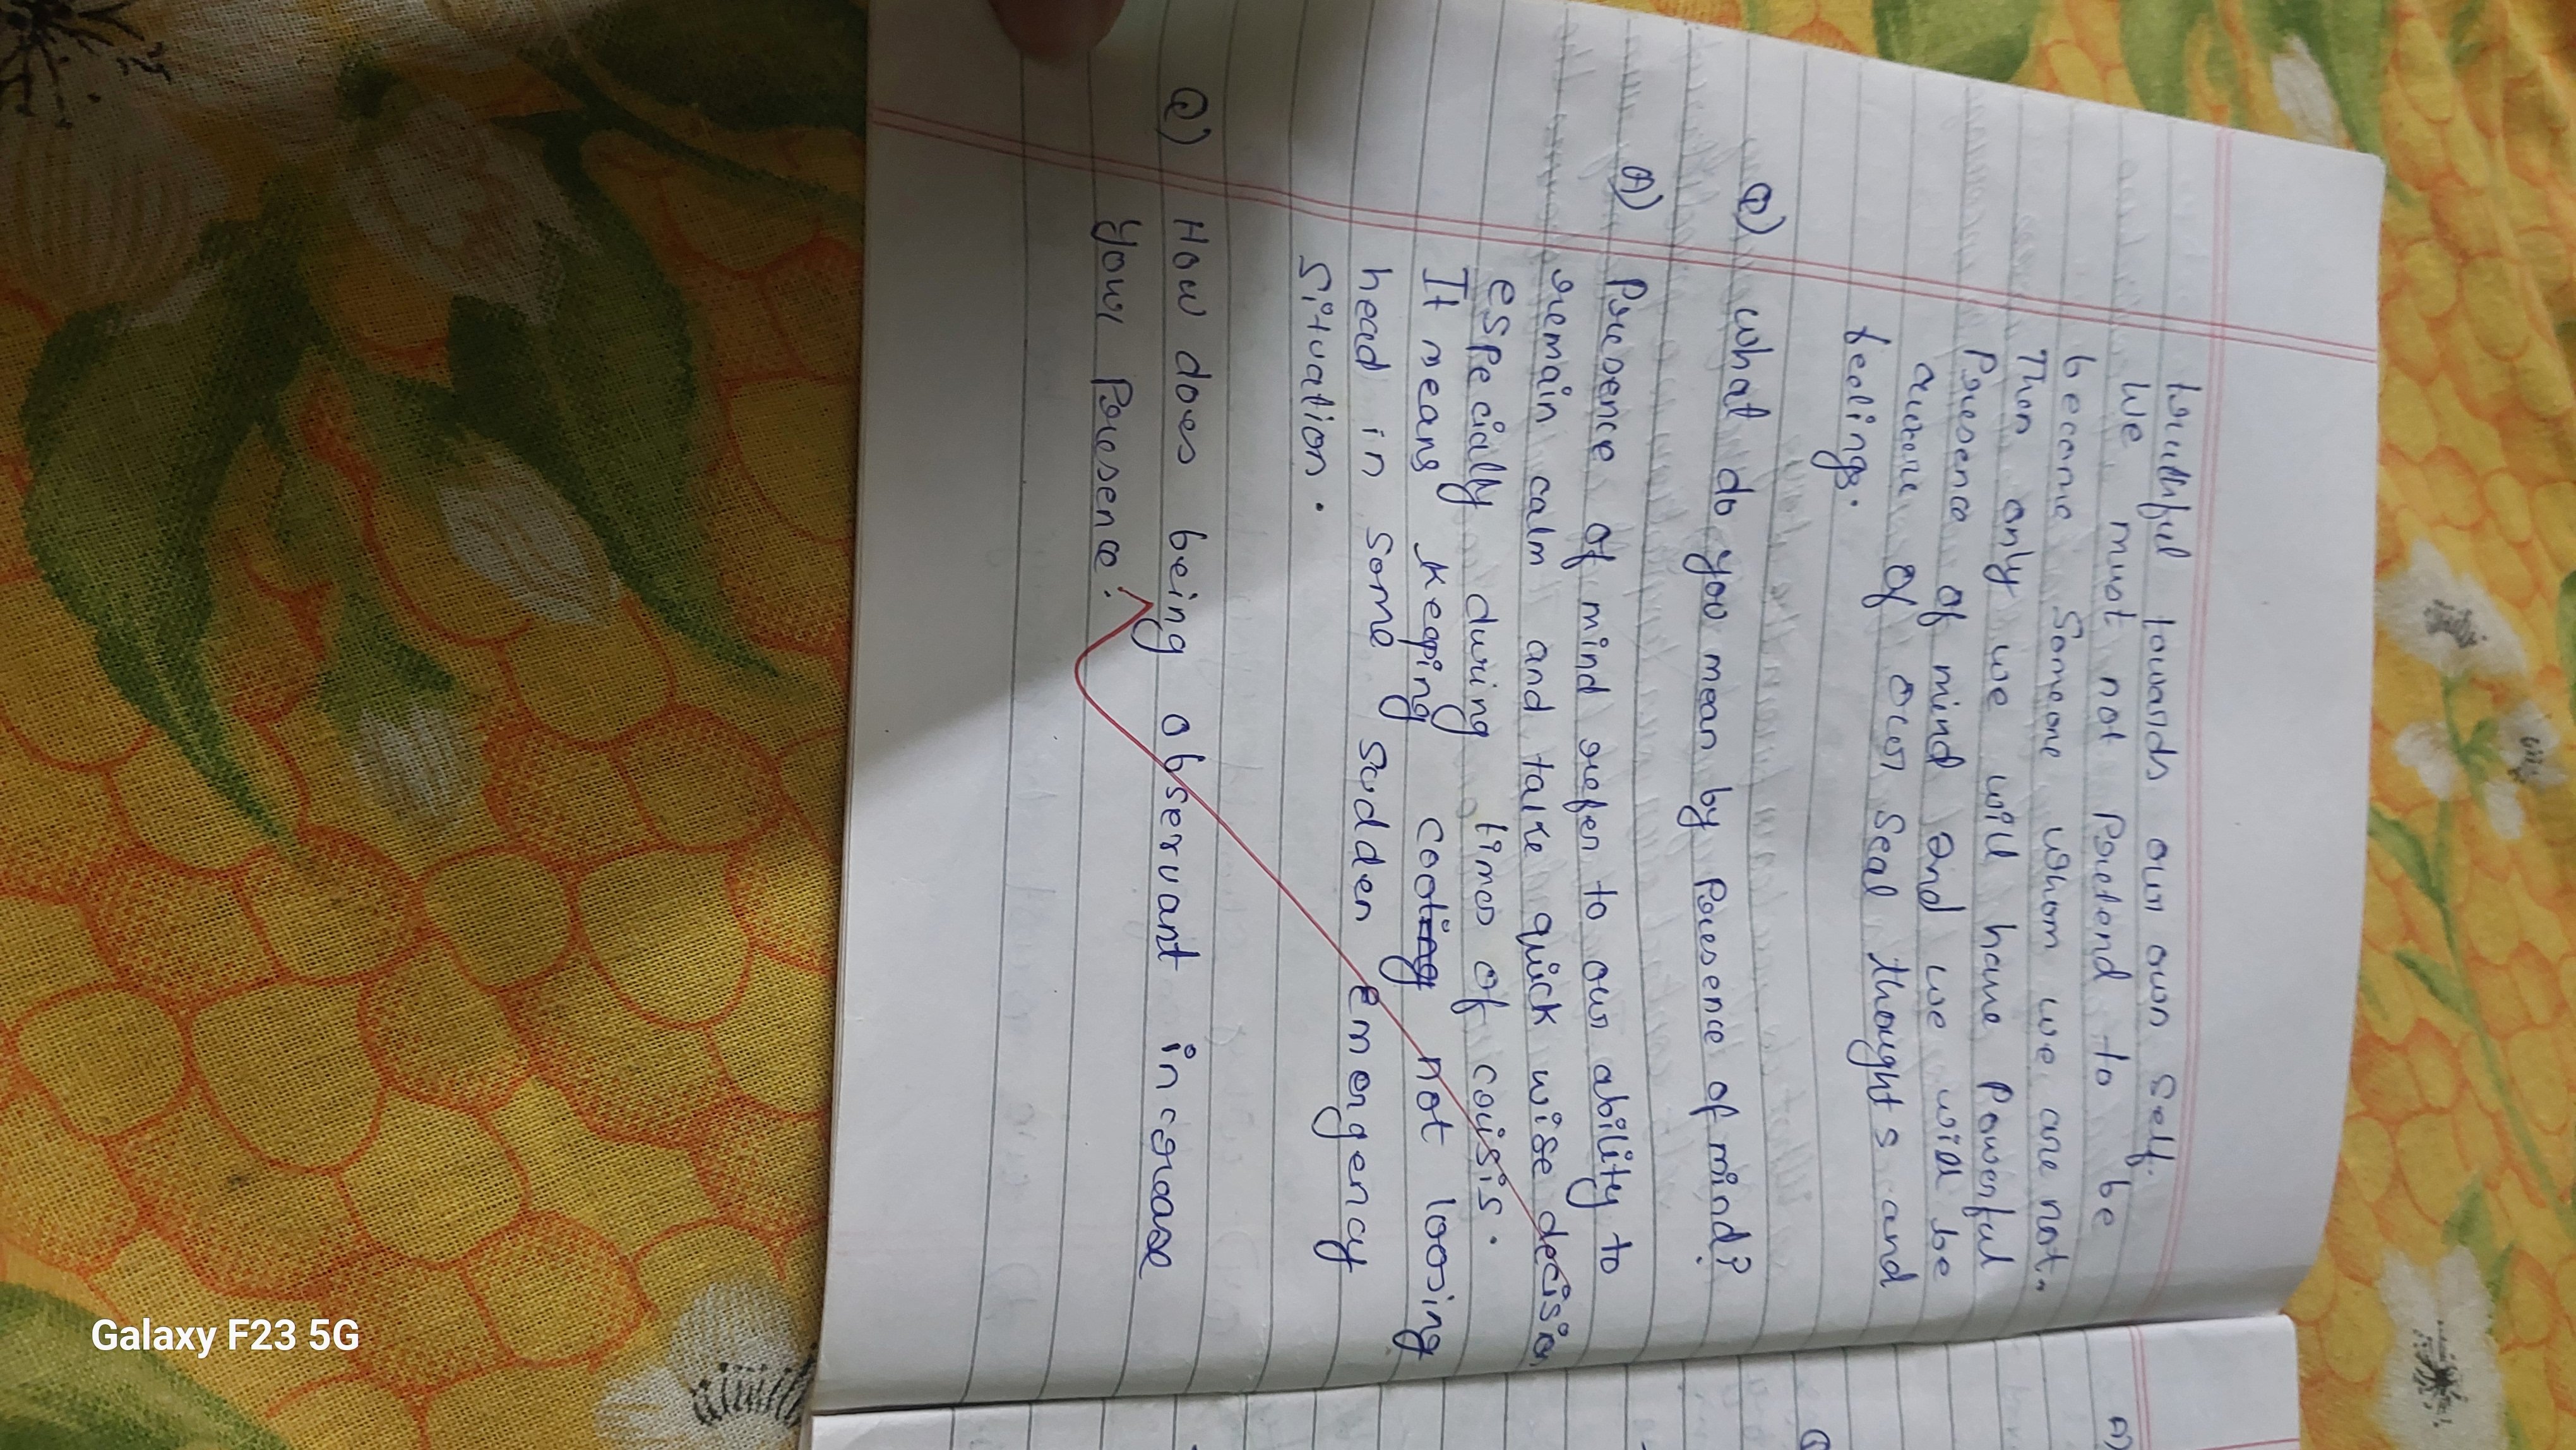 truthful towards our own self.
We must not Pretend to be
become Someone whom we are not.
Then only we will have Powerful
Presence of mind and we will be
aware of our Seal thoughts and
feelings.
Q) What do you mean by Presence of mind?
A) Presence of mind refer to our ability to
remain calm and take quick wise decision
especially during times of crisis.
It means keeping cooling not loosing
head in some sudden emergency
situation.
Q) How does being observant increase
your Presence?
A)
Galaxy F23 5G